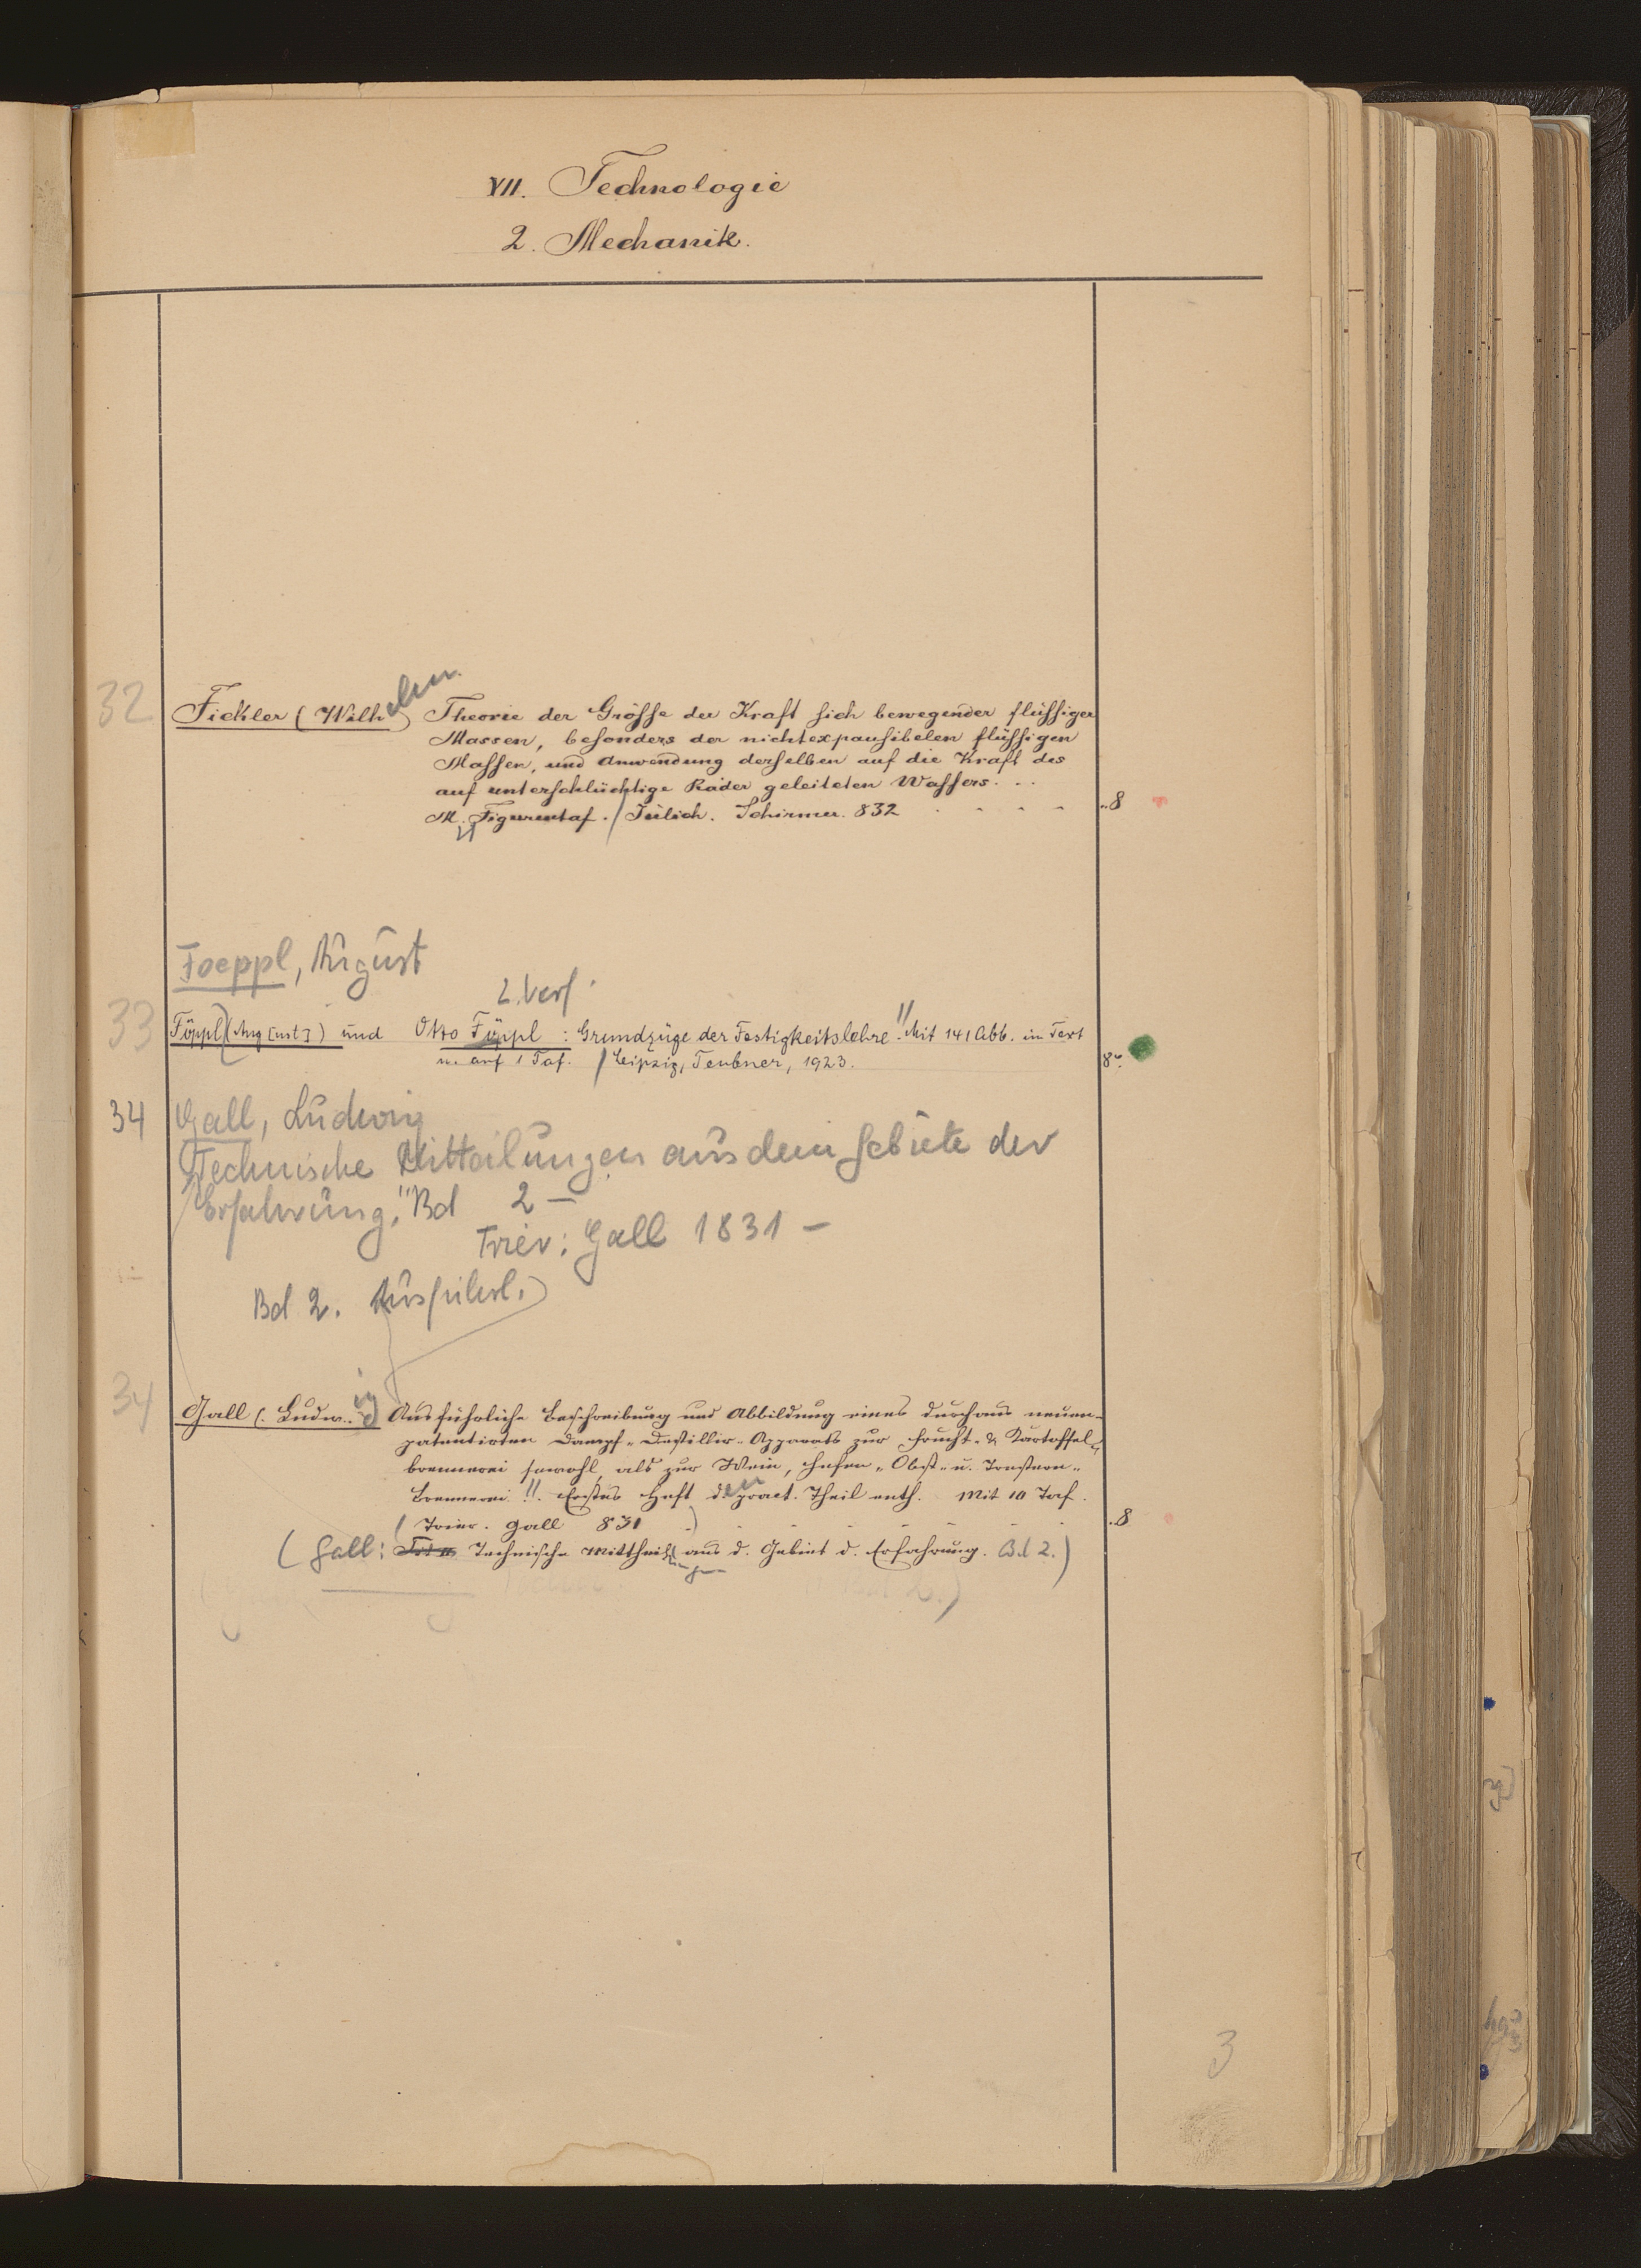 VII. Technologie
2. Mechanik.
32
Fickler (Wilhelm) Theorie der Grösse der Kraft sich bewegender flüssiger
Massen, besonders der nichtexpansibelen flüssigen
Massen, und Anwendung derselben auf die Kraft des
auf unterschlächtige Räder geleiteten Wassers. . .
M. Figurentaf. / Jülich. Schirmer. 832 8
Foeppl, August
2. Verf.
33
Föppl (Aug[ust]) und Otto Föppl : Grundzüge der Festigkeitslehre. // Mit 141 Abb. im Text
u. auf 1 Taf. / Leipzig, Teubner, 1923. 8°.
34 Gall, Ludwig
Technische Mitteilungen aus dem Gebiete der
Erfahrung. " Bd 2 –
Trier: Gall 1831 –
Bd 2. Ausführl.
34
Gall (Ludwig) Ausführliche Beschreibung und Abbildung eines durchaus neuen
patentirten Dampf-Destillir-Apparats zur Frucht- & Kartoffel-
brennerei sowohl, als zur Wein, Hefen-, Obst- u. Trestern-
Brennerei. Erstes Heft den pract. Theil enth. Mit 10 Taf.
(Trier. Gall 831) 8
(Gall: Technische Mittheilungen aus d. Gebiet d. Erfahrung. Bd 2.)
3